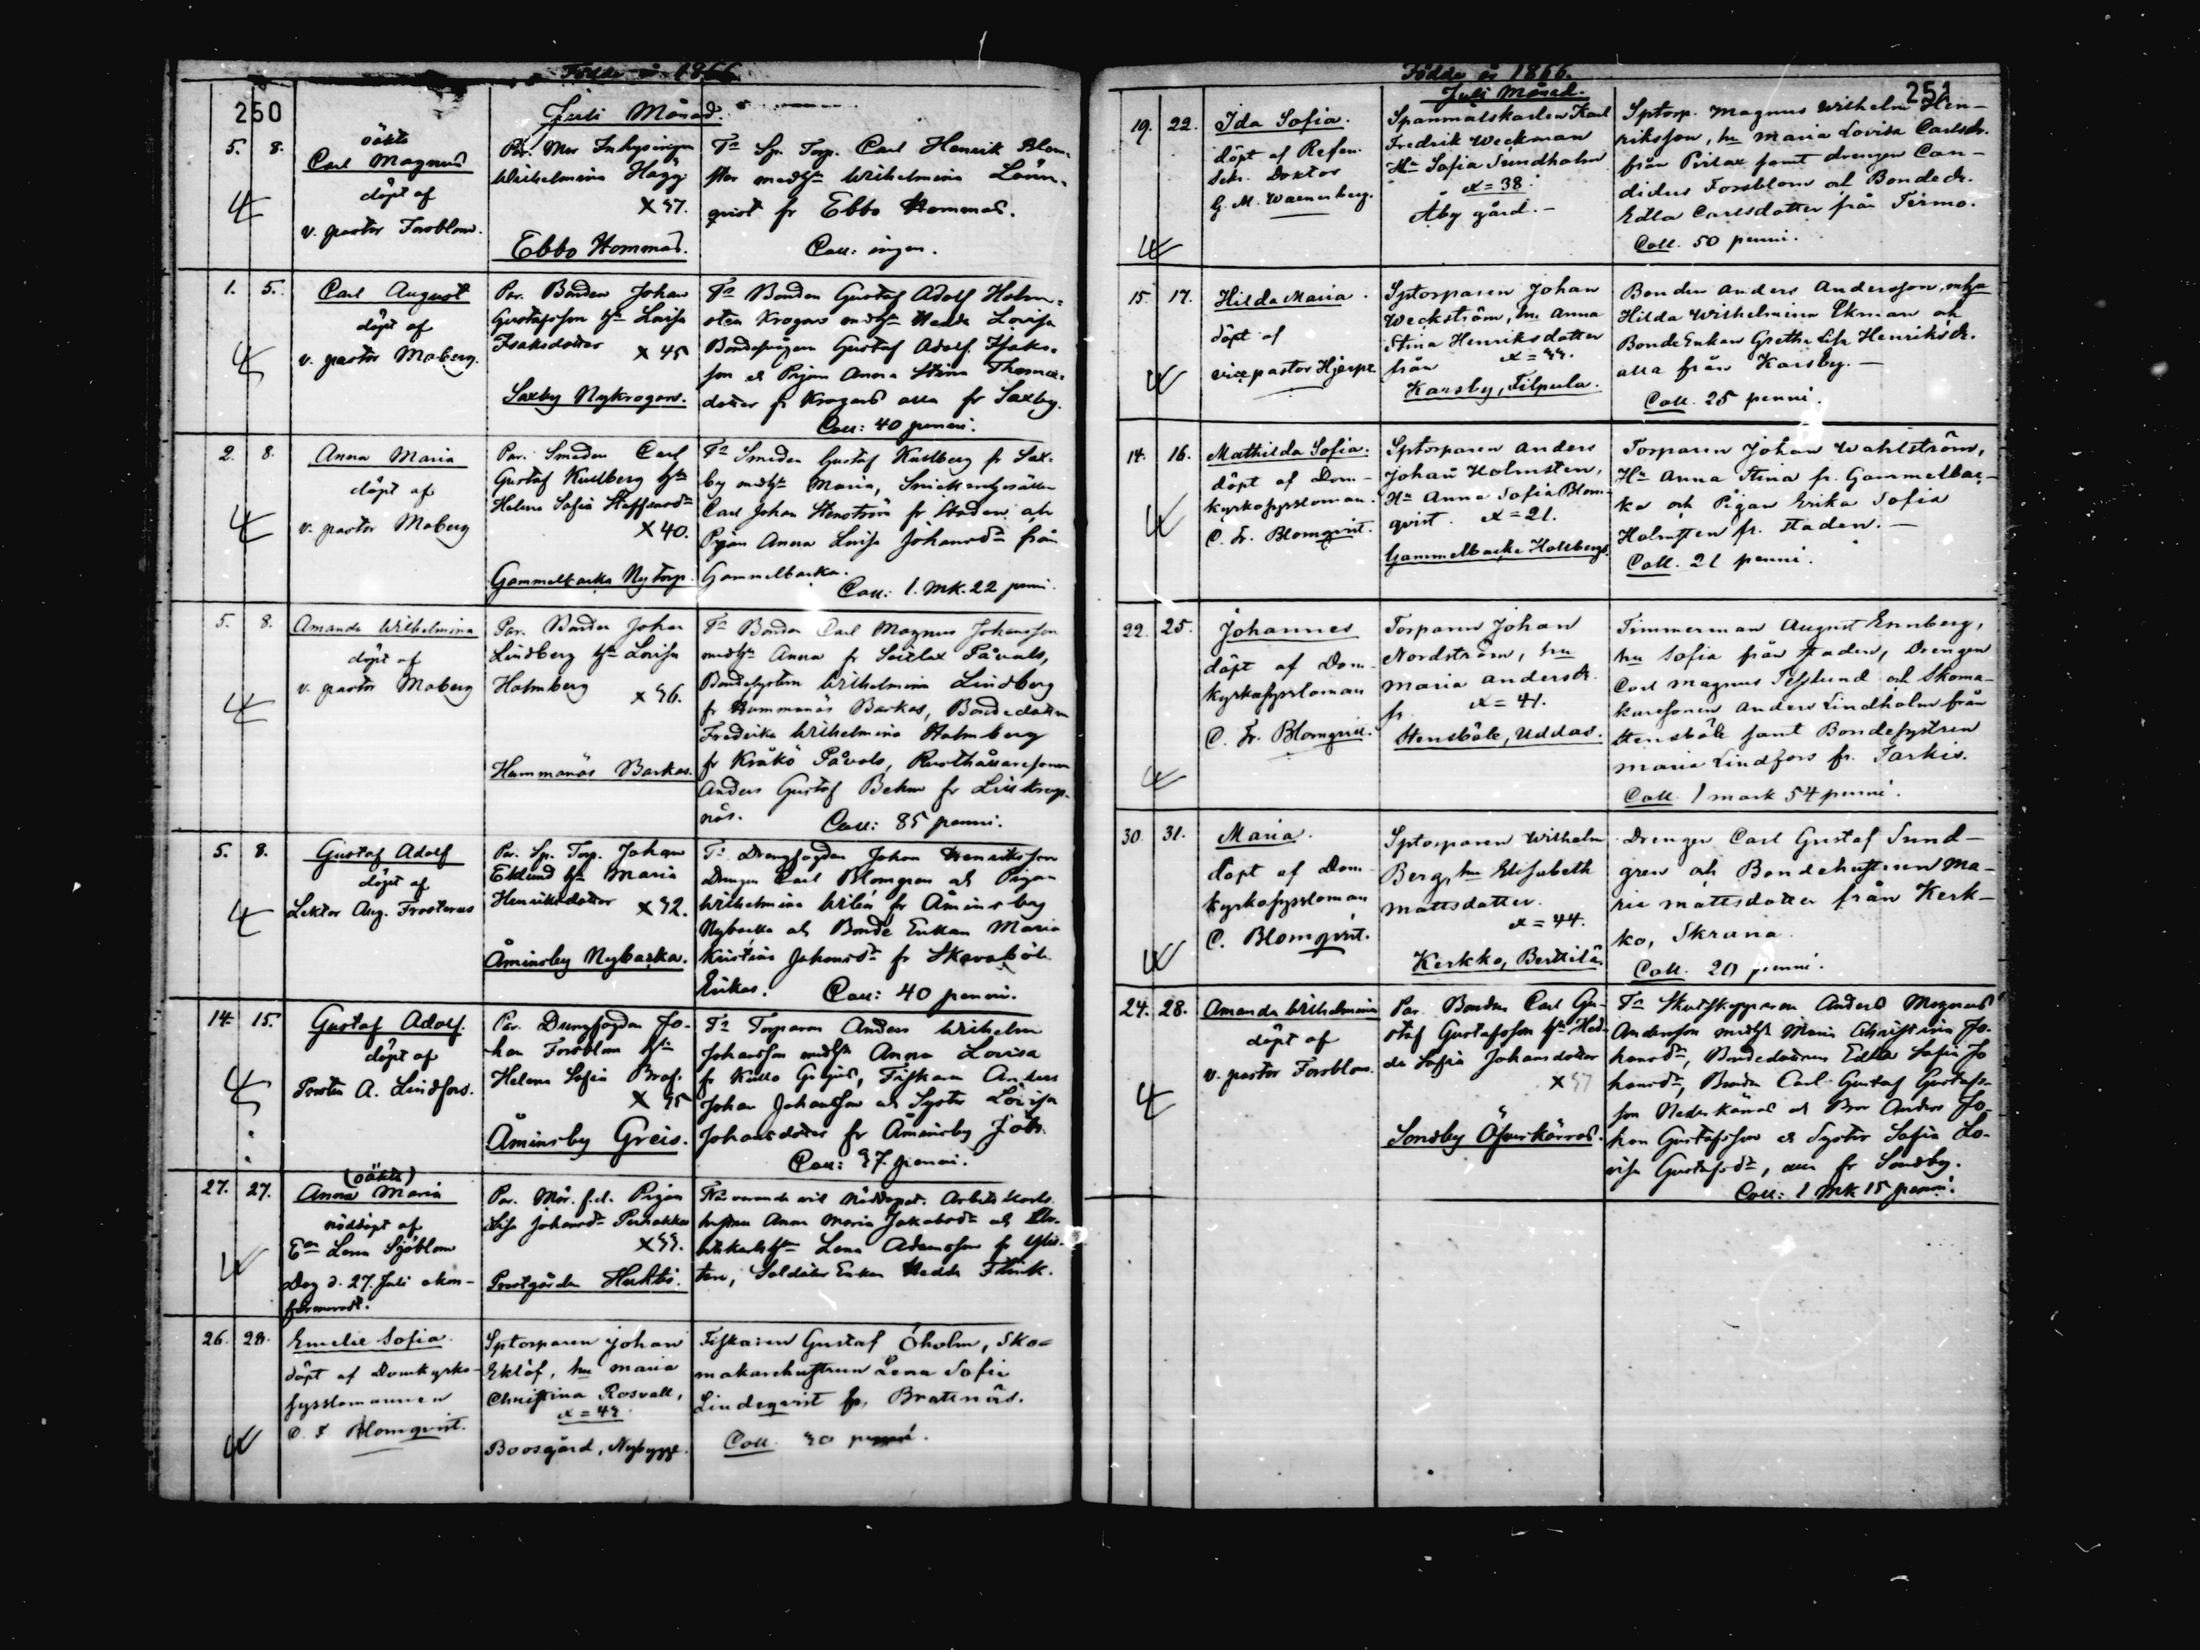 Födde år 1866.
250
Juli Månad.
5. 8.
oäkta
Carl Magnus
döpt af
v. pastor Forsblom.
Par. Mor Inhysingen
Wilhelmina Hägg
X 37.
Ebbo Hommas.
Fr Sp. Torp. Carl Henrik Blom-
 medhu Wilhelmina Lönn-
qvist fr Ebbo Hommas.
Coll: ingen.
1. 5.
Carl August
döpt af
v. pastor Moberg.
Par. Bonden Johan
Gustafsson hu Lovisa
Isaksdotter X 45
Saxby Nykrogars.
Fr Bonden Gustaf Adolf Holm-
sten Krogars medhu Hedda Lovisa
Gustaf Adolf Isaks-
son & Pigan Anna Stina Thomas-
dotter fr Krogars alla fr Saxby.
Coll: 40 penni.
2. 8.
Anna Maria
döpt af
v. pastor Moberg
Par. Smeden Carl
Gustaf Kullberg hu
Helena Sofia Staffansdr
X 40.
Gammelbacka Nytorp.
Fr Smeden Gustaf Kullberg fr Sax-
by medhu Maria, Snickaregesällen
Carl Johan Stenström fr Staden, och
Pigan Anna Lovisa Johansdr från
Gammelbacka.
Coll: 1. Mk. 22 penni.
5. 8.
Amanda Wilhelmina
döpt af
v. pastor Moberg
Par. Bonden Johan
Lindberg hu Lovisa
Holmberg X 36.
Hammanäs Barkas.
Fr Bonden Carl Magnus Johansson
medhu Anna fr Seitlax Påvals,
Bondesystern Wilhelmina Lindberg
fr Hammanäs Barkas, Bondedottren
Fredrika Wilhelmina Holmberg
fr Kråkö Påvals, Rusthållaresonen
Anders Gustaf Behm fr
näs. Coll: 85 penni.
5. 8.
Gustaf Adolf
döpt af
Lektor Aug. Frosterus
Par. Sp. Torp. Johan
Eklund hu Maria
Henriksdotter X 32.
Åminsby Nybacka.
Fr Drengfogden Johan Henriksson
Drengen Carl Blomgren och Pigan
Wilhelmina fr Åminsby
Nybacka och Bonde Enkan Maria
Kristina Johansdr fr Skavaböle
Erikas. Coll: 40 penni.
14. 15.
Gustaf Adolf.
döpt af
Prosten A. Lindfors.
Par. Drengfogden Jo-
han Forsblom hu
Helena Sofia Braf.
X 35
Åminsby Greis.
Fr Torparen Anders Wilhelm
Johansson medhu Anna Lovisa
fr Kullo, Fiskaren Anders
Johan Johansson och Syster Lovisa
Johansdotter fr Åminsby Jöns.
Coll: 37. penni.
27. 27.
(oäkta)
Anna Maria
nöddöpt af
En Lena Sjöblom
Dog d. 27. Juli okon-
firmerad.
Par. Mor. f.d. Pigan
Lisa Johansdr
X 33.
Prostgården
Närvarande vid nöddopet. Arbetskarls
hustrun Anna Maria Jakobsdr och Ar-
betskarlshun Lena Adamsson fr
 Soldats Enkan Hedda Flink.
26. 28.
Emelie Sofia
döpt af Domkyrko-
sysslomannen
C. F. Blomqvist.
Sptorparen Johan
Eklöf, hu Maria
Christina Rosvall,
x = 43
Boosgård, Nybygge.
Fiskaren Gustaf Öholm, Sko-
makarehustrun Lena Sofia
Lindeqvist fr. Brattnäs.
Coll. 30 penni.
Födde år 1866.
251
Juli Månad.
19. 22.
Ida Sofia.
döpt af Refer.
Sekr. Doktor
G. M. Waenerberg.
Spanmålskarlen Karl
Fredrik Weckman
Hu Sofia Sundholm
x = 38.
Åby gård.
Sptorp. Magnus Wilhelm Hen-
riksson, hu Maria Lovisa Carlsdr.
från Pirlax samt drengen Can-
didus Forsblom och Bondedr.
Edla Carlsdotter från Tirmo.
Coll. 50 penni.
15. 17.
Hilda Maria.
döpt af
vicepastor Hjerpe
Sptorparen Johan
Weckström, hu Anna
Stina Henriksdotter
x = 33.
från
Karsby, Filpula.
Bonden Anders Andersson,
Hilda Wilhelmina Ekman och
BondeEnkan Gretha Lisa Henriksdr.
alla från Karsby.
Coll. 25 penni.
14. 16.
Mathilda Sofia.
döpt af Dom-
kyrkosyssloman.
C. Fr. Blomqvist.
Sptorparen Anders
Johan Holmsten,
Hu Anna Sofia Blom-
qvist. x = 21.
Gammelbacka Holsbergs
Torparen Johan Wahlström,
Hu Anna Stina fr. Gammelbac-
ka och Pigan Erika Sofia
Holmsten fr. staden.
Coll. 21 penni.
22. 25.
Johannes
döpt af Dom
kyrkosyssloman
C. Fr. Blomqvist.
Torparen Johan
Nordström, hu
Maria Andersdr.
fr. x = 41.
Stensböle, Uddas.
Timmerman August Ennberg,
hu Sofia från staden, Drengen
Carl Magnus och Skoma-
karesonen Anders Lindholm från
Stensböle samt Bondesystren
Maria Lindfors fr. Tarkis.
Coll. 1 mark 54 penni.
30. 31.
Maria.
döpt af Dom
kyrkosyssloman
C. Blomqvist.
Sptorparen Wilhelm
Berg, hu Elisabeth
Mattsdotter.
x = 44.
Kerkko, Berttilä.
Drengen Carl Gustaf Sund-
gren och Bondehustrun Ma-
ria Mattsdotter från Kerk-
ko, Skruna.
Coll. 20 penni.
24. 28.
Amanda Wilhelmina
döpt af
v. pastor Forsblom.
Par. Bonden Carl Gu-
staf Gustafsson hu Hed-
da Sofia Johansdotter
X 37
Sondby Öfverkärras.
Fr Skutskepparen Anders Magnus
Andersson medhu Maria Christina Jo-
hansdr, Bondedottren Edla Sofia Jo
hansdr, Bonden Carl Gustaf Gustafs-
son Nederkärras och Bror Anders Jo-
han Gustafsson & Syster Sofia Lo-
visa Gustafsdr, alla fr Sondby.
Coll: 1 Mk 15 penni.